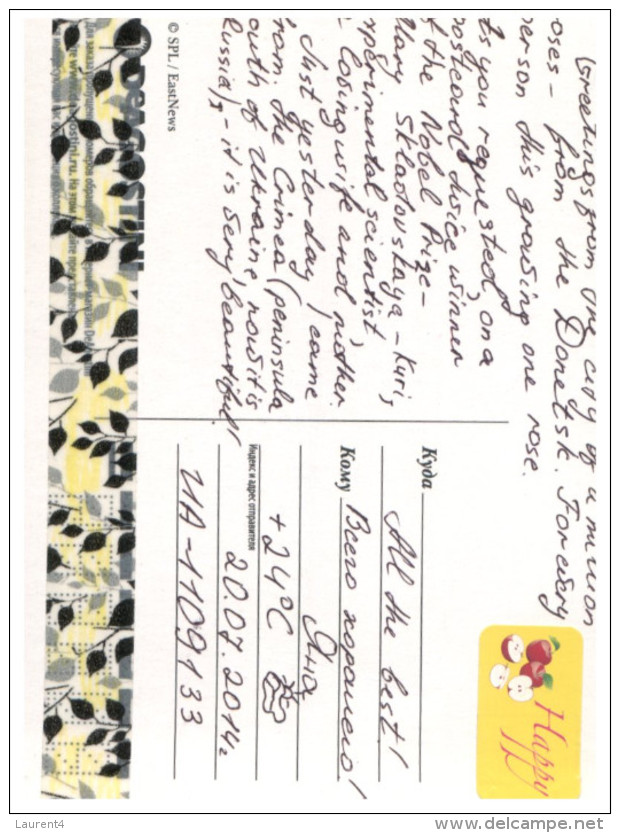 Greetings from the city of a million
oses – from the Donetsk. For every
erson this growing one rose.
ts you requested, on a
postcard twice winner
f the Nobel Prize –
Mary Skladovskaya – Kuri,
xperimental scientist
– Loving wife and mother.
Just yesterday, came
rom the Crimea (peninsula
outh of Ukraine, now it is
Russia), – it is very beautiful!
© SPL / EastNews
DEAGOSTINI
Куда
All the best!
Кому Всего хорошего!
Яна
Индекс и адрес отправителя
+24°C
20.07.2014г
UA-1109133
Happy
Laurent4
www.delcampe.net